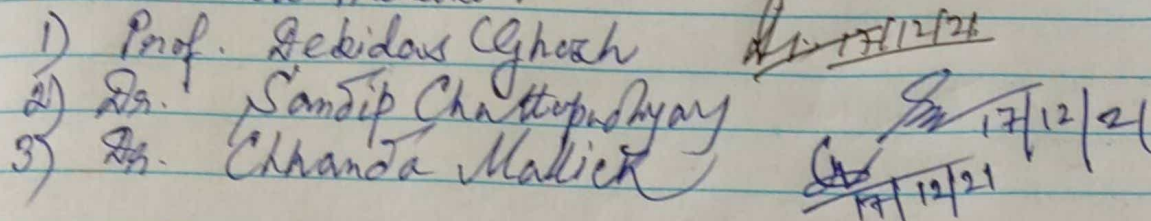 1) Prof. Debidas Ghosh 17/12/21
2) Dr. Sandip Chattopadhyay 17/12/21
3) Dr. Chhanda Mallick 17/12/21